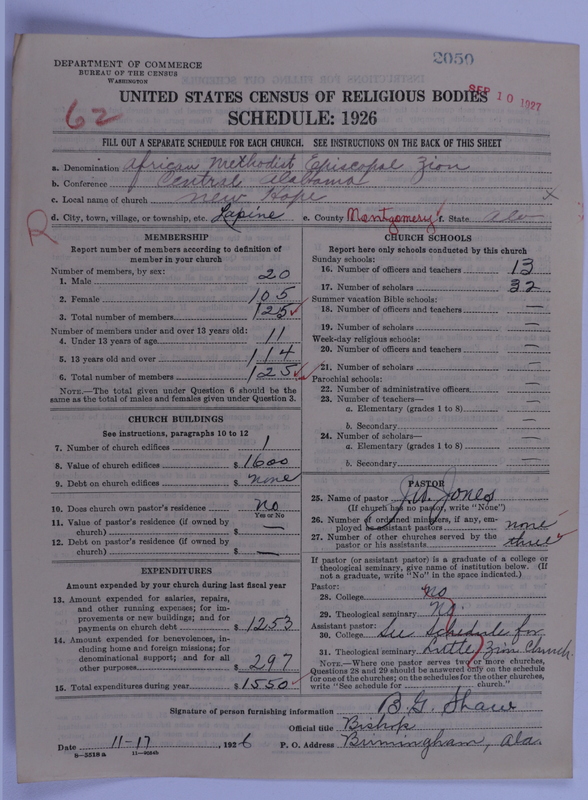 DEPARTMENT OF COMMERCE
BUREAU OF THE CENSUS
WASHINGTON
2050
SEP 10 1927
62
UNITED STATES CENSUS OF RELIGIOUS BODIES
SCHEDULE: 1926
FILL OUT A SEPARATE SCHEDULE FOR EACH CHURCH. SEE INSTRUCTIONS ON THE BACK OF THIS SHEET
a. Denomination African Methodist Episcopal Zion
b. Conference Central Alabama
c. Local name of church New Hope x
d. City, town, village, or township, etc. Lapine e. County Montgomery f. State Ala
R
MEMBERSHIP
Report number of members according to definition of
member in your church
Number of members, by sex:
1. Male 20
2. Female 105
3. Total number of members 125
Number of members under and over 13 years old:
4. Under 13 years of age 11
5. 13 years old and over 114
6. Total number of members 125
NOTE.—The total given under Question 6 should be the
same as the total of males and females given under Question 3.
CHURCH BUILDINGS
See instructions, paragraphs 10 to 12
7. Number of church edifices 1
8. Value of church edifices $ 1600
9. Debt on church edifices $ none
10. Does church own pastor's residence No
Yes or No
11. Value of pastor's residence (if owned by
church) $ —
12. Debt on pastor's residence (if owned by
church) $ —
EXPENDITURES
Amount expended by your church during last fiscal year
13. Amount expended for salaries, repairs,
and other running expenses; for im-
provements or new buildings; and for
payments on church debt $ 1253
14. Amount expended for benevolences, in-
cluding home and foreign missions; for
denominational support; and for all
other purposes $ 297
15. Total expenditures during year $ 1550
CHURCH SCHOOLS
Report here only schools conducted by this church
Sunday schools:
16. Number of officers and teachers 13
17. Number of scholars 32
Summer vacation Bible schools:
18. Number of officers and teachers —
19. Number of scholars —
Week-day religious schools:
20. Number of officers and teachers —
21. Number of scholars —
Parochial schools:
22. Number of administrative officers —
23. Number of teachers—
a. Elementary (grades 1 to 8) —
b. Secondary —
24. Number of scholars—
a. Elementary (grades 1 to 8) —
b. Secondary —
PASTOR
25. Name of pastor Jones
(If church has no pastor, write "None")
26. Number of ordained ministers, if any, em-
ployed as assistant pastors none
27. Number of other churches served by the
pastor or his assistants three
If pastor (or assistant pastor) is a graduate of a college or
theological seminary, give name of institution below. (If
not a graduate, write "No" in the space indicated.)
Pastor:
28. College No
29. Theological seminary No
Assistant pastor:
30. College See Schedule for
31. Theological seminary Little Zion Church
NOTE.—Where one pastor serves two or more churches,
Questions 28 and 29 should be answered only on the schedule
for one of the churches; on the schedules for the other churches,
write "See schedule for church."
Signature of person furnishing information B. G. Shaw
Official title Bishop
Date 11-17, 1926 P. O. Address Birmingham, Ala.
8-2518a